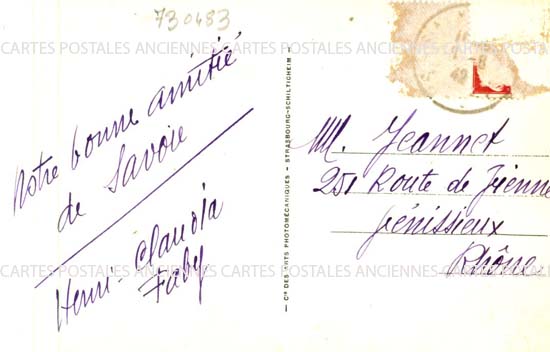 730483
CARTES POSTALES ANCIENNES CARTES POSTALES ANCIENNES CARTES POSTALES ANCIENNES
Notre bonne amitié
de Savoie
Henri - Claudia
Faby
— Cie DES ARTS PHOTOMÉCANIQUES - STRASBOURG-SCHILTIGHEIM —
M. Jeannet
251 Route de Vienne
Vénissieux
Rhône
CARTES POSTALES ANCIENNES CARTES POSTALES ANCIENNES CARTES POSTALES ANCIENNES